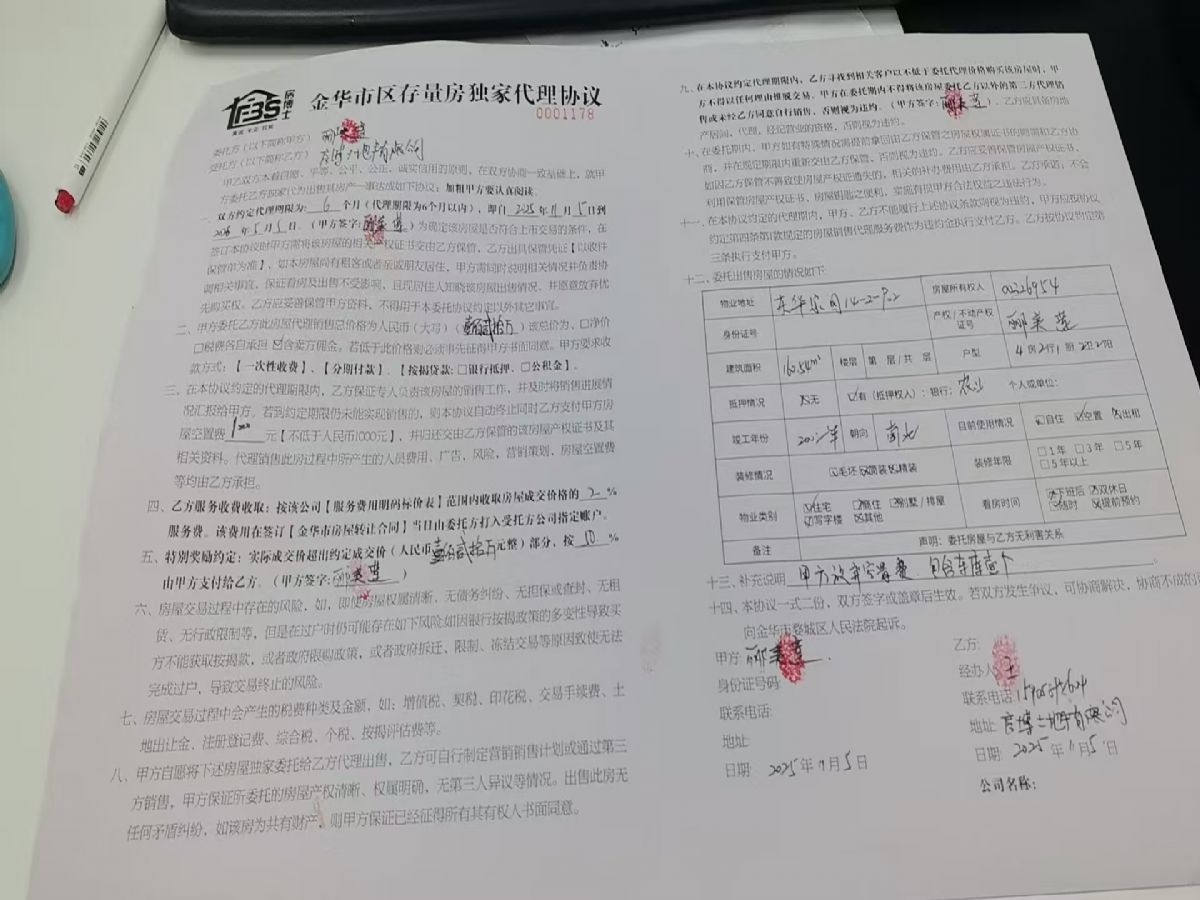 FBS 房博士
金华市区存量房独家代理协议
0001178
委托方（以下简称甲方）
受托方（以下简称乙方） 房博士地产有限公司
甲乙双方本着自愿、平等、公平、公正、诚实信用的原则，在双方协商一致基础上，就甲
方委托乙方独家代为出售其房产一事达成如下协议：加粗甲方要认真阅读。
一、双方约定代理期限为：6个月（代理期限为6个月以内），即自2025年11月5日到
2026年5月5日。（甲方签字：郦美莲）为确定该房屋是否符合上市交易的条件，在
签订本协议时甲方需将该房屋的相关产权证书交由乙方保管，乙方出具保管凭证【以收件
保管单为准】，如本房屋尚有租客或者亲戚朋友居住，甲方需同时说明相关情况并负责协
调相关事宜，保证看房及出售不受影响，且现居住人知晓该房屋出售情况，并愿意放弃优
先购买权。乙方应妥善保管甲方资料，不得用于本委托协议约定以外其它事宜。
二、甲方委托乙方此房屋代理销售总价格为人民币（大写）（壹佰贰拾万）该总价为、□净价
□税费各自承担 ☑含卖方佣金。若低于此价格则必须事先征得甲方书面同意。甲方要求收
款方式：【一次性收费】、【分期付款】、【按揭贷款：□银行抵押、□公积金】。
三、在本协议约定的代理期限内，乙方保证专人负责该房屋的销售工作，并及时将销售进展情
况汇报给甲方。若到约定期限仍未能实现销售的，则本协议自动终止同时乙方支付甲方房
屋空置费1000元【不低于人民币1000元】，并归还交由乙方保管的该房屋产权证书及其
相关资料。代理销售此房过程中所产生的人员费用、广告，风险，营销策划、房屋空置费
等均由乙方承担。
四、乙方服务收费收取：按该公司【服务费用明码标价表】范围内收取房屋成交价格的 2 %
服务费。该费用在签订【金华市房屋转让合同】当日由委托方打入受托方公司指定账户。
五、特别奖励约定：实际成交价超出约定成交价（人民币壹佰贰拾万元整）部分，按 10 %
由甲方支付给乙方。（甲方签字：郦美莲）
六、房屋交易过程中存在的风险，如，即使房屋权属清晰、无债务纠纷、无担保或查封、无租
赁、无行政限制等，但是在过户时仍可能存在如下风险如因银行按揭政策的多变性导致买
方不能获取按揭款，或者政府限购政策，或者政府拆迁，限制、冻结交易等原因致使无法
完成过户，导致交易终止的风险。
七、房屋交易过程中会产生的税费种类及金额，如：增值税、契税、印花税、交易手续费、土
地出让金、注册登记费、综合税、个税、按揭评估费等。
八、甲方自愿将下述房屋独家委托给乙方代理出售，乙方可自行制定营销销售计划或通过第三
方销售，甲方保证所委托的房屋产权清晰、权属明确，无第三人异议等情况。出售此房无
任何矛盾纠纷，如该房为共有财产，则甲方保证已经征得所有其有权人书面同意。
九、在本协议约定代理期限内，乙方寻找到相关客户以不低于委托代理价格购买该房屋时，甲
方不得以任何理由推脱交易。甲方在委托期内不得将该房屋委托乙方以外的第三方代理销
售或未经乙方同意自行销售，否则视为违约。（甲方签字：郦美莲）。乙方应具备房地
产居间、代理，经纪营业的资格，否则视为违约。
十、在委托期内，甲方如有特殊情况需提前拿回由乙方保管之房屋权属证书的则需和乙方协
商，并在规定期限内重新交由乙方保管，否则视为违约。乙方应妥善保管房屋产权证书、
如因乙方保管不善致使房屋产权证遗失的，相关的补办费用由乙方承担。乙方承诺：不会
利用保管房屋产权证书、房屋钥匙之便利，实施有损甲方合法权益之违法行为。
十一、在本协议约定的代理期内，甲方、乙方不能履行上述协议条款则视为违约，甲方应按协议
约定第四条第1款规定的房屋销售代理服务费作为违约金执行支付乙方。乙方按协议约定第
三条执行支付甲方。
十二、委托出售房屋的情况如下：
物业地址 东华家园14-2-702 房屋所有权人 00226954
身份证号 产权/不动产权证号 郦美莲
建筑面积 160.54m² 楼层 第 层/共 层 户型 4房2厅1厨2卫2阳
抵押情况 ☒无 ☑有（抵押权人）：银行：农业 个人或单位：
竣工年份 朝向 南北 目前使用情况 □自住 ☑空置 ☒出租
装修情况 ☑毛坯 ☒简装 ☒精装 装修年限 □1年 □3年 □5年 □5年以上
物业类别 ☑住宅 ☒商住 ☒别墅/排屋 ☒写字楼 ☒其他 看房时间 ☒下班后 ☑双休日 ☑随时 ☒提前预约
备注 声明：委托房屋与乙方无利害关系
十三、补充说明 甲方放弃空置费 包含车库壹个
十四、本协议一式二份，双方签字或盖章后生效。若双方发生争议，可协商解决，协商不成的
向金华市婺城区人民法院起诉。
甲方：郦美莲
身份证号码：
联系电话：
地址：
日期： 2025年11月5日
乙方：
经办人：
联系电话：
地址：房博士地产有限公司
日期： 2025年11月5日
公司名称：